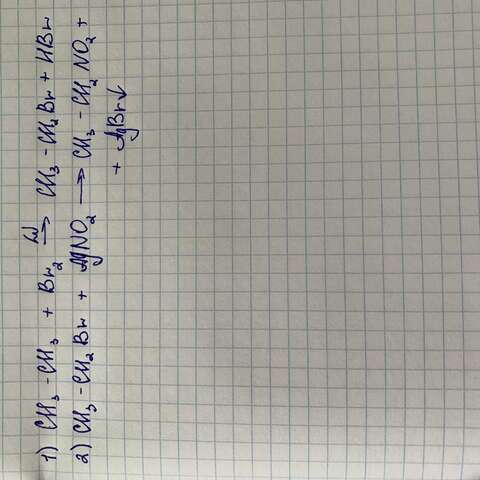 1) CH₃ - CH₃ + Br₂ hν→ CH₃ - CH₂Br + HBr
2) CH₃ - CH₂Br + AgNO₂ → CH₃ - CH₂NO₂ +
+ AgBr↓